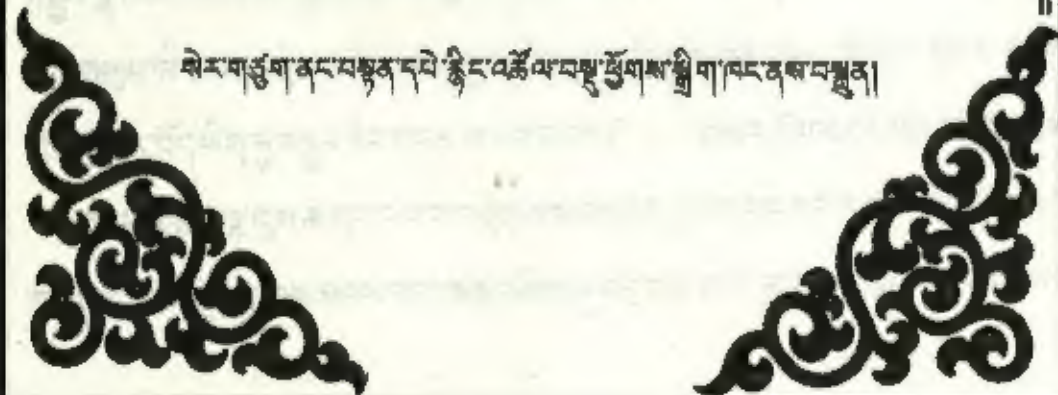 སེར་གཙུག་ནང་བསྟན་དཔེ་རྙིང་འཚོལ་བསྡུ་ཕྱོགས་སྒྲིག་ཁང་ནས་བསྒྲུན།